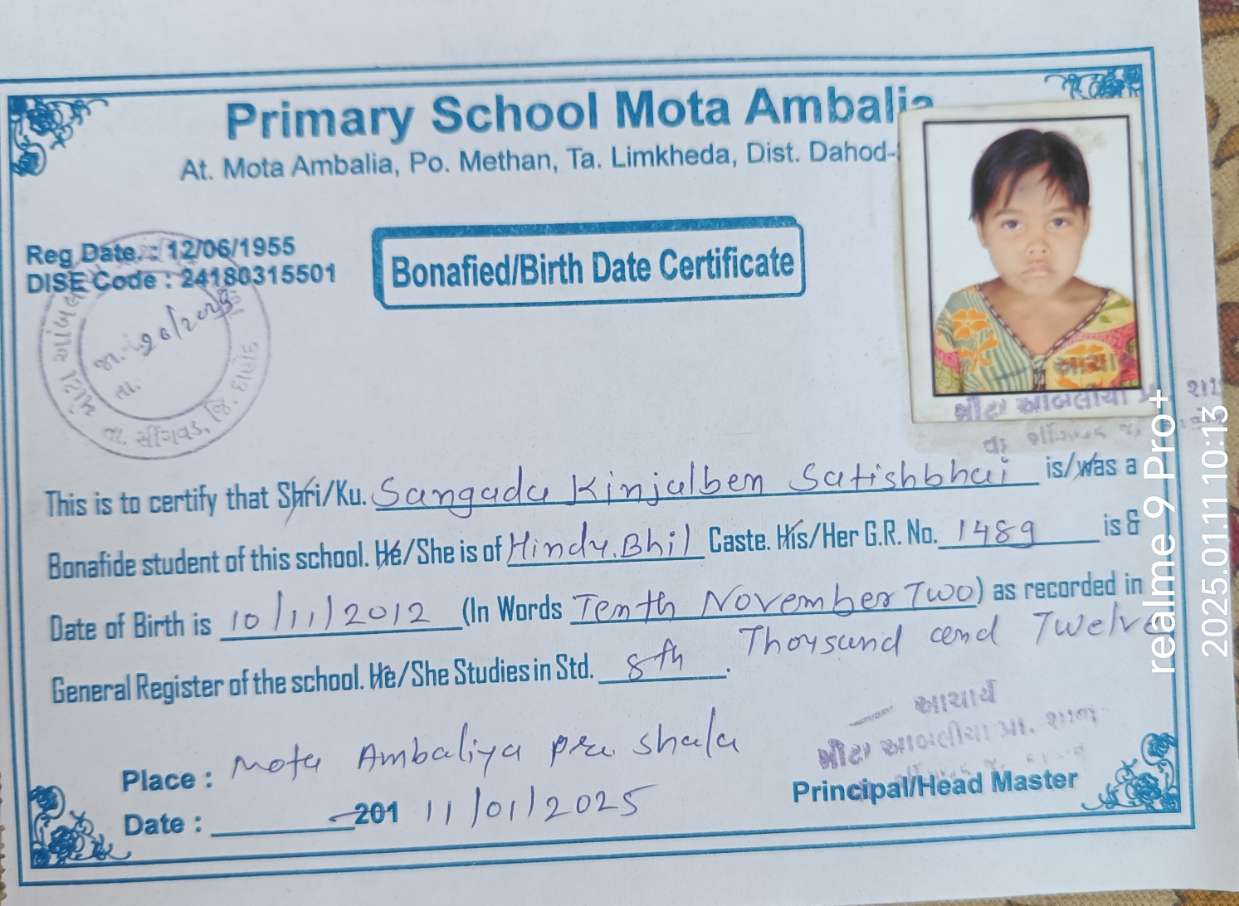 Primary School Mota Ambalia
At. Mota Ambalia, Po. Methan, Ta. Limkheda, Dist. Dahod-
Reg Date. : 12/06/1955
DISE Code : 24180315501
Bonafied/Birth Date Certificate
મોટા આંબલ
જા.
તા.
તા. સીંગવડ, જિ. દાહોદ
આચા
મોટા આંબલીયા પ્રા. શા
This is to certify that Shri/Ku. Sangada Kinjalben Satishbhai is/was a
Bonafide student of this school. He/She is of Hindu.Bhil Caste. His/Her G.R. No. 1489 is &
Date of Birth is 10/11/2012 (In Words Tenth November Two) as recorded in
Thousand and Twelve
General Register of the school. He/She Studies in Std. 8th.
આચાર્ય
મોટા આંબલીયા પ્રા. શાળા
Place : Mota Ambaliya pra shala
Principal/Head Master
Date : 201 11/01/2025
realme 9 Pro+
2025.01.11 10:13